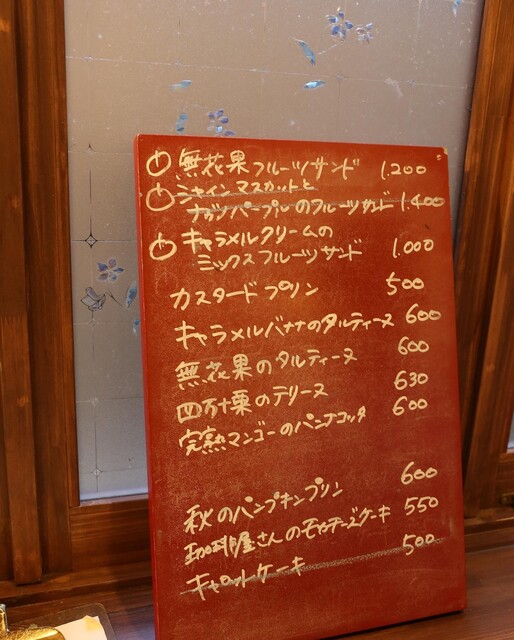 無花果フルーツサンド 1.200
シャインマスカットと
ナガノパープルのフルーツサンド 1.400
キャラメルクリームの
ミックスフルーツサンド 1.000
カスタードプリン 500
キャラメルバナナのタルティーヌ 600
無花果のタルティーヌ 600
四万十栗のテリーヌ 630
完熟マンゴーのパンナコッタ 600
秋のパンプキンプリン 600
珈琲屋さんのモカチーズケーキ 550
キャロットケーキ 500